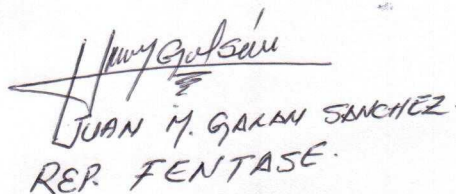 JUAN M. GARAY SANCHEZ.
REP. FENTASE.